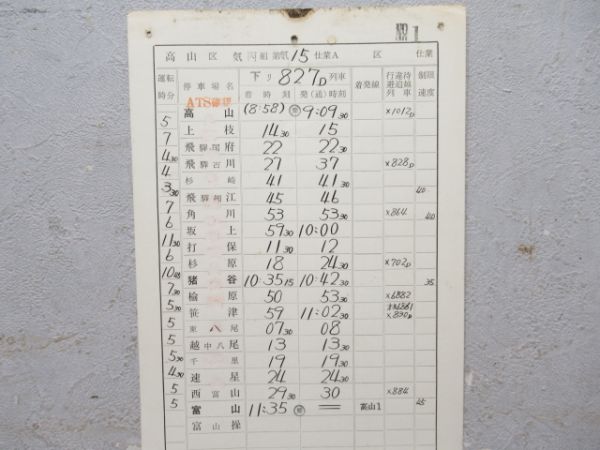 NR 1
高山区 気 組 第気15仕業A 区 仕業
運転時分 停車場名 下り 827D 列車 着発線 行違待避追越列車 制限速度
ATS確認 着時刻 発(通)時刻
高山 (8:58) 9:09 30 ×1012D
5
上枝 14 30 15
7
飛騨国府 22 22 30
4 30
飛騨古川 27 37 ×828D
4
杉崎 41 41 30
3 30 40
飛騨細江 45 46
7
角川 53 53 30 ×864 40
6
坂上 59 30 10:00
11 30
打保 11 30 12
6
杉原 18 24 30 ×702D
10 45
猪谷 10:35 15 10:42 30 35
7 30
楡原 50 53 30 ×6882
5 30
笹津 59 11:02 30 ×830D
5
東八尾 07 30 08
5
越中八尾 13 13 30
5 30
千里 19 19 30
4 30
速星 24 24 30
5
西富山 29 30 30 ×884
5 45
富山 11:35 = 高山1
富山操